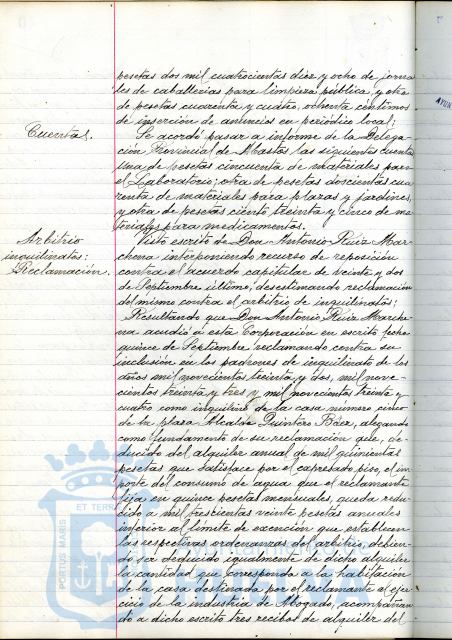 pesetas dos mil cuatrocientas diez y ocho de jorna
les de caballerías para limpieza pública y otra
de pesetas cuarenta y cuatro, ochenta centimos
de inserción de anuncios en periódico local;
Cuentas.
Se acordó pasar a informe de la Delega-
ción Provincial de Abastos las siguientes cuentas
una de pesetas cincuenta de materiales para
el Laboratorio; otra de pesetas doscientas cua
renta de materiales para plazas y jardines,
y otra de pesetas ciento treinta y cinco de ma
teriales para medicamentos.
Arbitrio
inquilinatos:
Reclamación.
Visto escrito de Don Antonio Ruiz Mar-
chena interponiendo recurso de reposición
contra el acuerdo capitular de veinte y dos
de Septiembre último, desestimando reclamación
del mismo contra el arbitrio de inquilinatos;
Resultando que Don Antonio Ruiz Marche-
na acudió a esta Corporación en escrito fecha
quince de Septiembre reclamando contra su
inclusión en los padrones de inquilinato de los
años mil novecientos treinta y dos, mil nove-
cientos treinta y tres y mil novecientos treinta y
cuatro como inquilino de la casa número cinco
de la plaza Alcalde Quintero Báez, alegando
como fundamento de su reclamación que, de-
ducido del alquiler anual de mil quinientas
pesetas que satisface por el expresado piso, el im
porte del consumo de agua que el reclamante
fija en quince pesetas mensuales, queda redu
cido a mil trescientas veinte pesetas anuales
inferior al límite de exención que establecen
las respectivas ordenanzas del arbitrio, debien-
do ser deducido igualmente de dicho alquiler
la cantidad que corresponda a la habitación
de la casa destinada por el reclamante al ejer
cicio de la industria de Abogado, acompañan
do a dicho escrito tres recibos de alquiler del
PORTUS MARIS
ET TERRA
Ayuntamiento de
AYUN